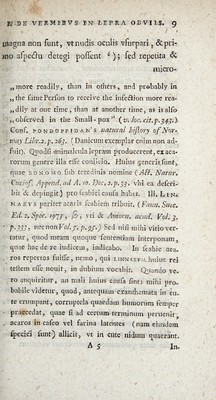 E DE VERMIBVS IN LEPRA OBVIIS. 9
magna non sunt, vt nudis oculis vsurpari, & pri-
mo aspectu detegi possent ²); sed repetita &
micro-
„more readily, than in others, and probably in
„the same Person to receive the infection more rea-
„dily at one time, than at another time, as is also
„observed in the Small-pox“ (v. loc. cit. p. 343.)
Conf. PONDOPPIDAN's natural history of Nor-
way Libr. 2. p. 263. (Danicum exemplar enim non ad-
fuit). Quodsi animalcula lepram producerent, ex aca-
rorum genere illa esse conlicio. Huius generis sunt,
quae BONOMO sub teredinis nomine (Act. Natur.
Curios. Append. ad A. 10. Dec. 2. p. 33. vbi ea descri-
bit & depingit) pro scabiei causa habet. Ill. LINE
NAEVS pariter acaris scabiem tribuit. (Faun. Suec.
Ed. 2. Spec. 1975, &, vii & Amoen. acad. Vol. 3.
p. 333, nec non Vol. 5. p. 95.) Sed nisi mihi vitio ver-
tatur, quod meam quoque sententiam interponam,
quae hac de re iudicem, indicabo. In scabie aca-
ros repertos fuisse, nemo, qui LINNAEVM huius rei
testem esse nouit, in dubium vocabit. Quando ve-
ro anquiritur, an mali huius causa sint; mihi pro-
babile videtur, quod, antequam exanthemata in cu-
te erumpant, corruptela quaedam humorum semper
praecedat, quae si ad certum terminum peruenit,
acaros in caseo vel farina latentes (nam eiusdem
speciei sunt) allicit, vt in cute nidum quaerant.
A 5 In-